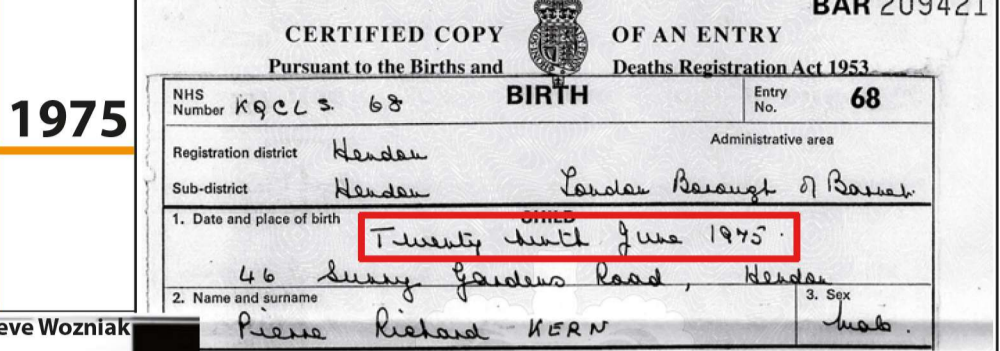 BAR 209421
CERTIFIED COPY OF AN ENTRY
Pursuant to the Births and Deaths Registration Act 1953
1975
NHS Number KQCL S. 68
BIRTH
Entry No. 68
Administrative area
Registration district Hendon
Sub-district Hendon London Borough of Barnet
CHILD
1. Date and place of birth Twenty ninth June 1975.
46 Sunny Gardens Road, Hendon
2. Name and surname
3. Sex
Pierre Richard KERN
Male.
eve Wozniak